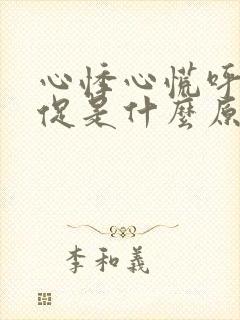 心悸心慌呼
促是什麼原
李和義